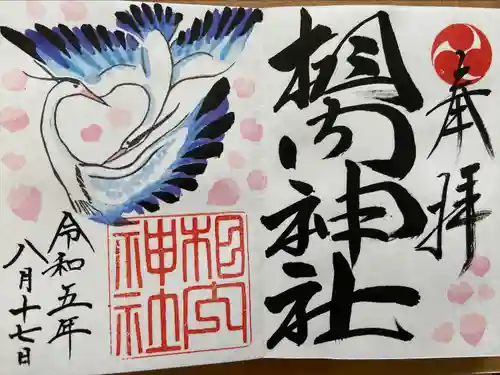 奉拝
相内神社
相内
神社
令和五年
八月十七日